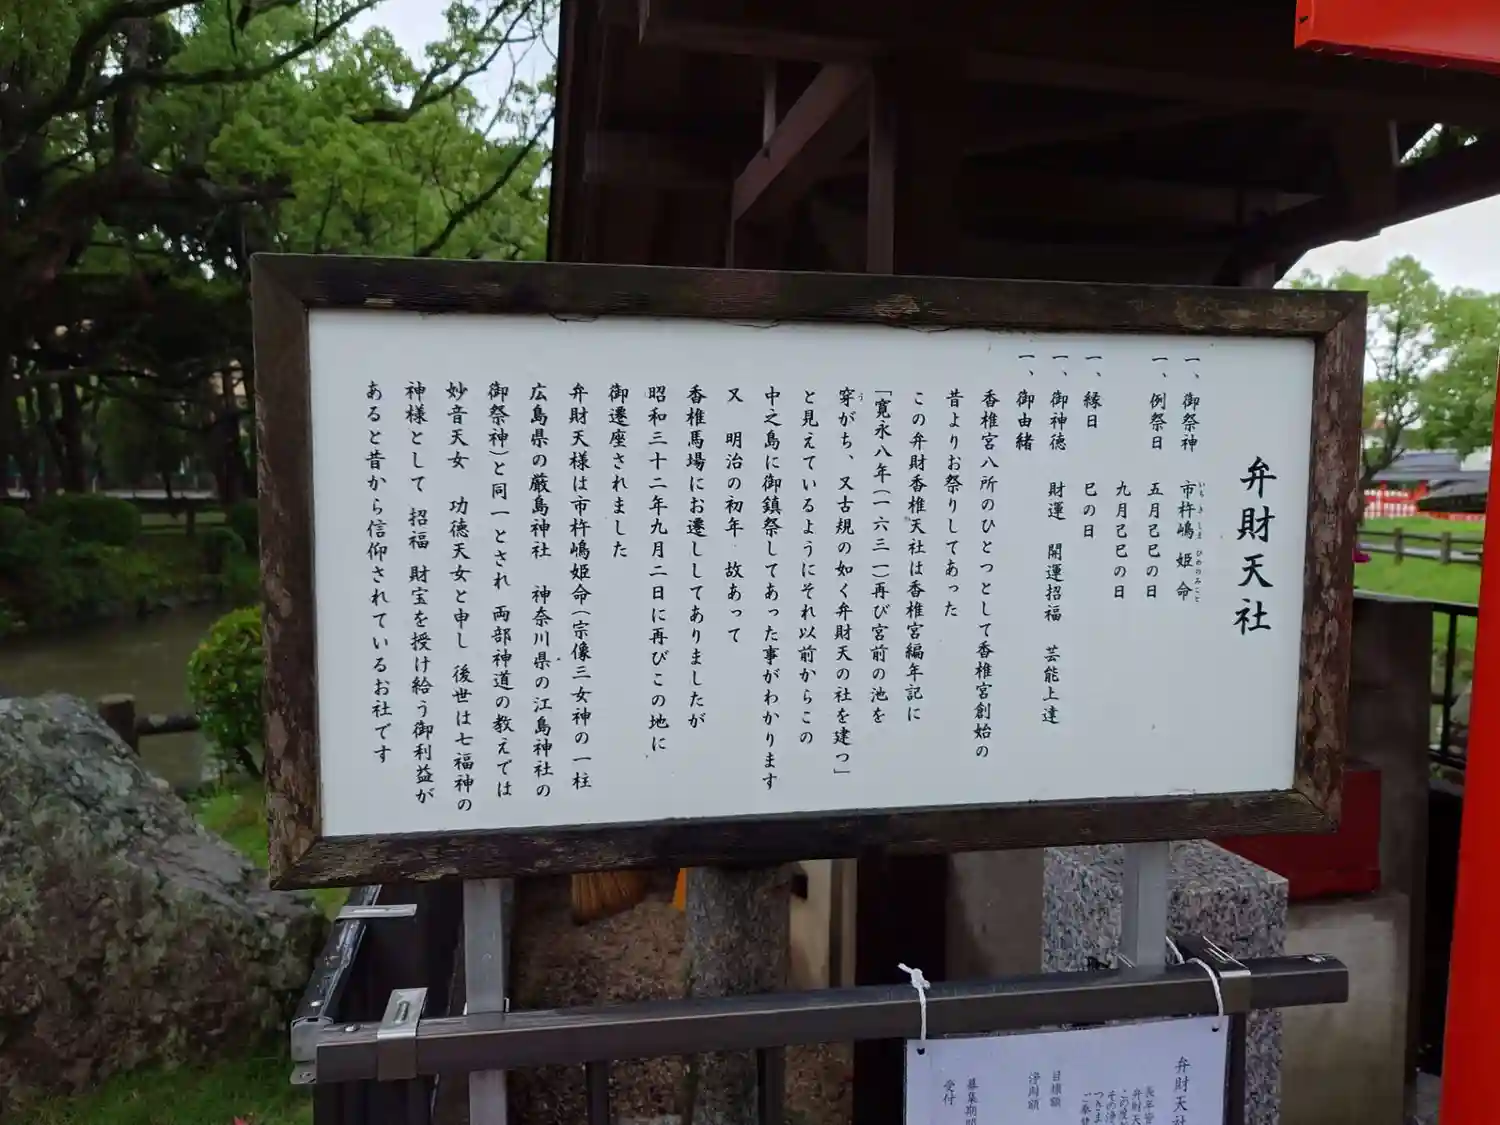 弁財天社
一、御祭神 市杵嶋姫命
いちきしまひめのみこと
一、例祭日 五月己巳の日
九月己巳の日
一、縁日 巳の日
一、御神徳 財運 開運招福 芸能上達
一、御由緒
香椎宮八所のひとつとして香椎宮創始の
昔よりお祭りしてあった
この弁財香椎天社は香椎宮編年記に
「寛永八年(一六三一)再び宮前の池を
穿がち、又古規の如く弁財天の社を建つ」
う
と見えているようにそれ以前からこの
中之島に御鎮祭してあった事がわかります
又 明治の初年 故あって
香椎馬場にお遷ししてありましたが
昭和三十二年九月二日に再びこの地に
御遷座されました
弁財天様は市杵嶋姫命(宗像三女神の一柱
広島県の厳島神社 神奈川県の江島神社の
御祭神)と同一とされ 両部神道の教えでは
妙音天女 功徳天女と申し 後世は七福神の
神様として 招福 財宝を授け給う御利益が
あると昔から信仰されているお社です
弁財天社
目標額
浄財額
募集期間
受付